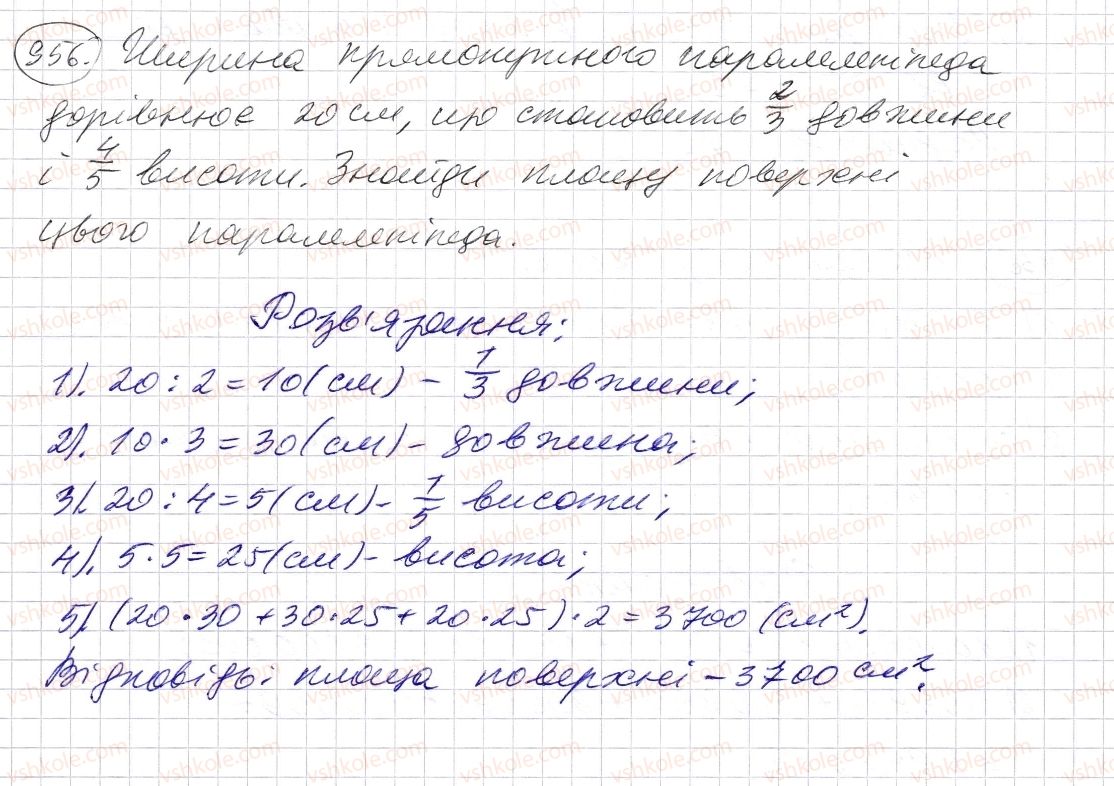 956. Ширина прямокутного паралелепіпеда
дорівнює 20 см, що становить 2/3 довжини
і 4/5 висоти. Знайди площу поверхні
цього паралелепіпеда.
Розв'язання:
1). 20 : 2 = 10 (см) - 1/3 довжини;
2). 10 · 3 = 30 (см) - довжина;
3). 20 : 4 = 5 (см) - 1/5 висоти;
4). 5 · 5 = 25 (см) - висота;
5). (20 · 30 + 30 · 25 + 20 · 25) · 2 = 3700 (см²).
Відповідь: площа поверхні - 3700 см².